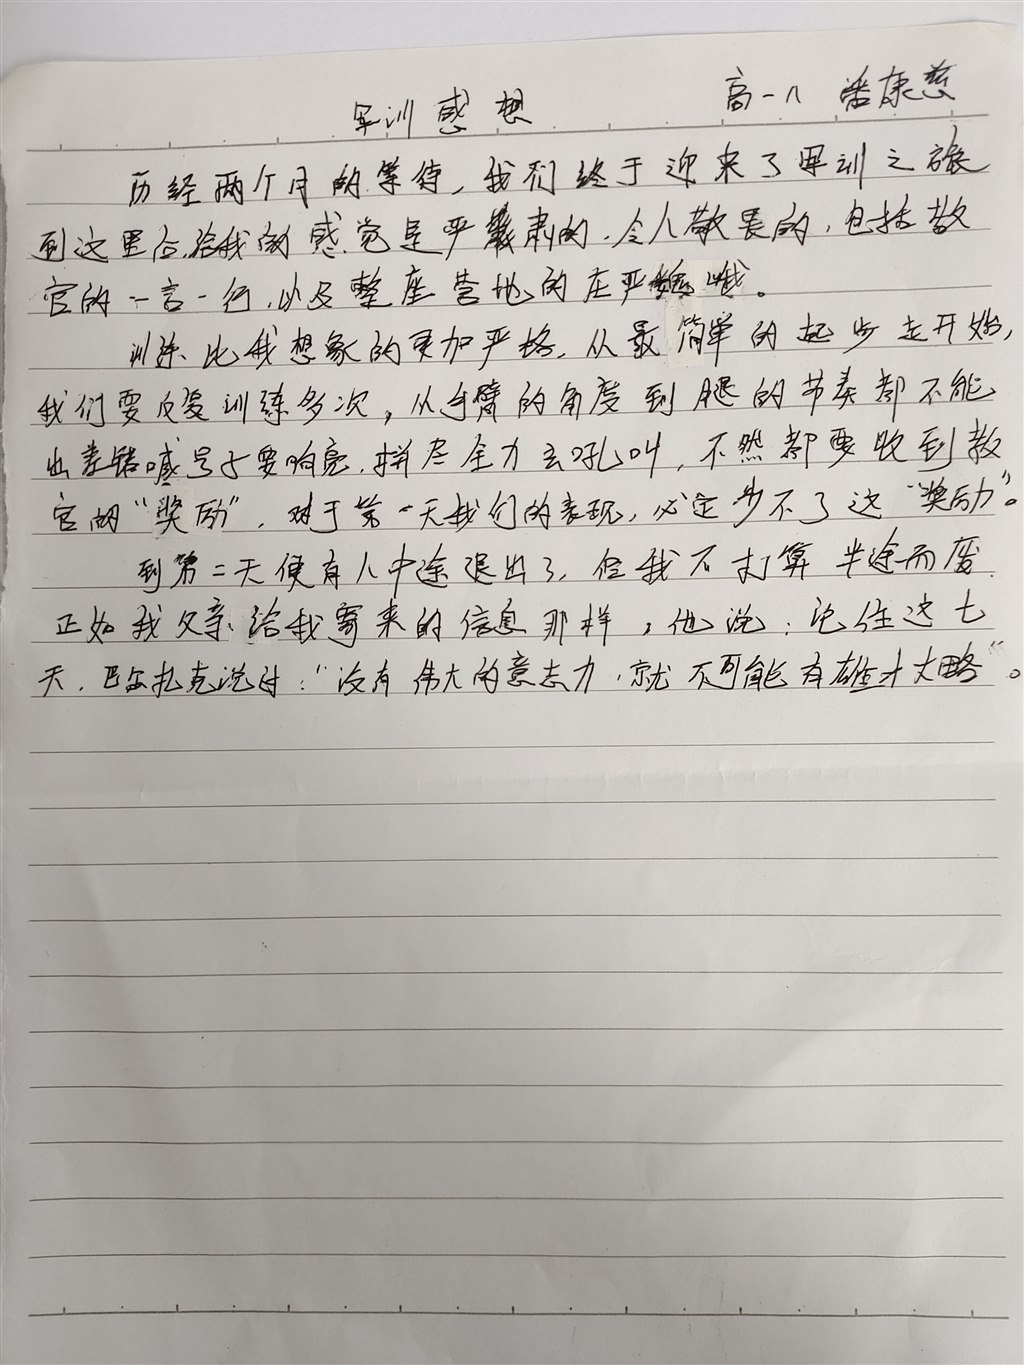 军训感想 高一八 潘康慈
历经两个月的等待，我们终于迎来了军训之旅
到这里后，给我的感觉是严肃的，令人敬畏的，包括教
官的一言一行，以及整座营地的庄严巍峨。
训练比我想象的更加严格，从最简单的起步走开始，
我们要反复训练多次，从手臂的角度到腿的节奏都不能
出差错喊号子要响亮，拼尽全力去吼叫，不然都要收到教
官的“奖励”，对于第一天我们的表现，必定少不了这“奖励”。
到第二天便有人中途退出了，但我不打算半途而废，
正如我父亲给我寄来的信息那样，他说：记住这七
天，巴尔扎克说过：“没有伟大的意志力，就不可能有雄才大略”。